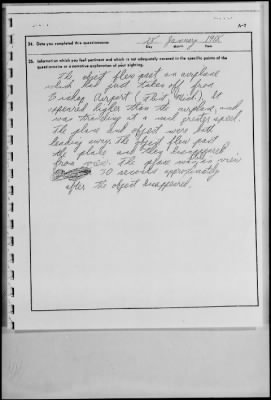 A-7
34. Date you completed this questionnaire:
18 January
Day Month Year
35. Information which you feel pertinent and which is not adequately covered in the specific points of the
questionnaire or a narrative explanation of your sighting.
The object flew past an airplane
which had just taken off from
Bishop Airport (Flint, Mich). It
appeared higher than the airplane, and
was traveling at a much greater speed.
The plane and object were both
heading away. The object flew past
the plane and they disappeared
from view. The plane was in view
10 seconds approximately
after the object disappeared.